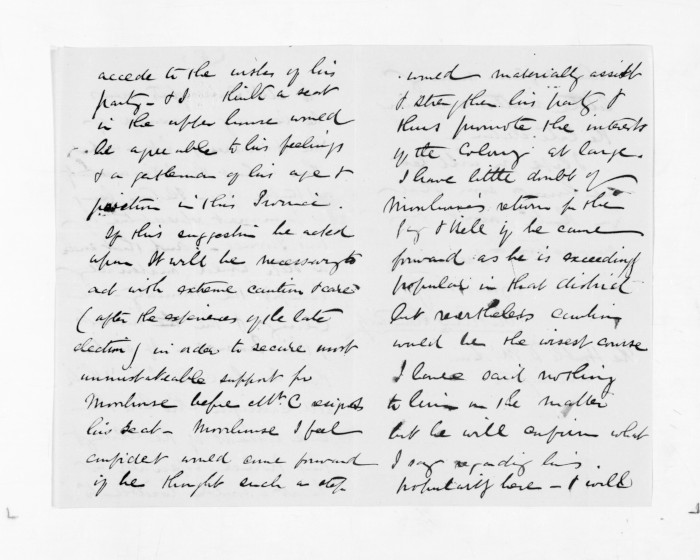 accede to the wishes of his
party - & I think a seat
in the upper house would
be agreeable to his feelings
& a gentleman of his age &
position in this Province.
If this suggestion be acted
upon It will be necessary to
act with extreme caution & care
(after the experiences of the late
election) in order to secure most
unmistakeable support for
Moorhouse before Mr. C resigns
his Seat - Moorhouse I feel
confident would come forward
if he thought such a step
would materially assist
& strengthen his party &
thus promote the interests
of the Colony at large.
I have little doubt of
Moorhouse's return for the
if he came
forward as he is exceedingly
popular in that district
but nevertheless caution
would be the wisest course
I have said nothing
to him on the matter
but he will confirm what
I say regarding his
popularity here - & will